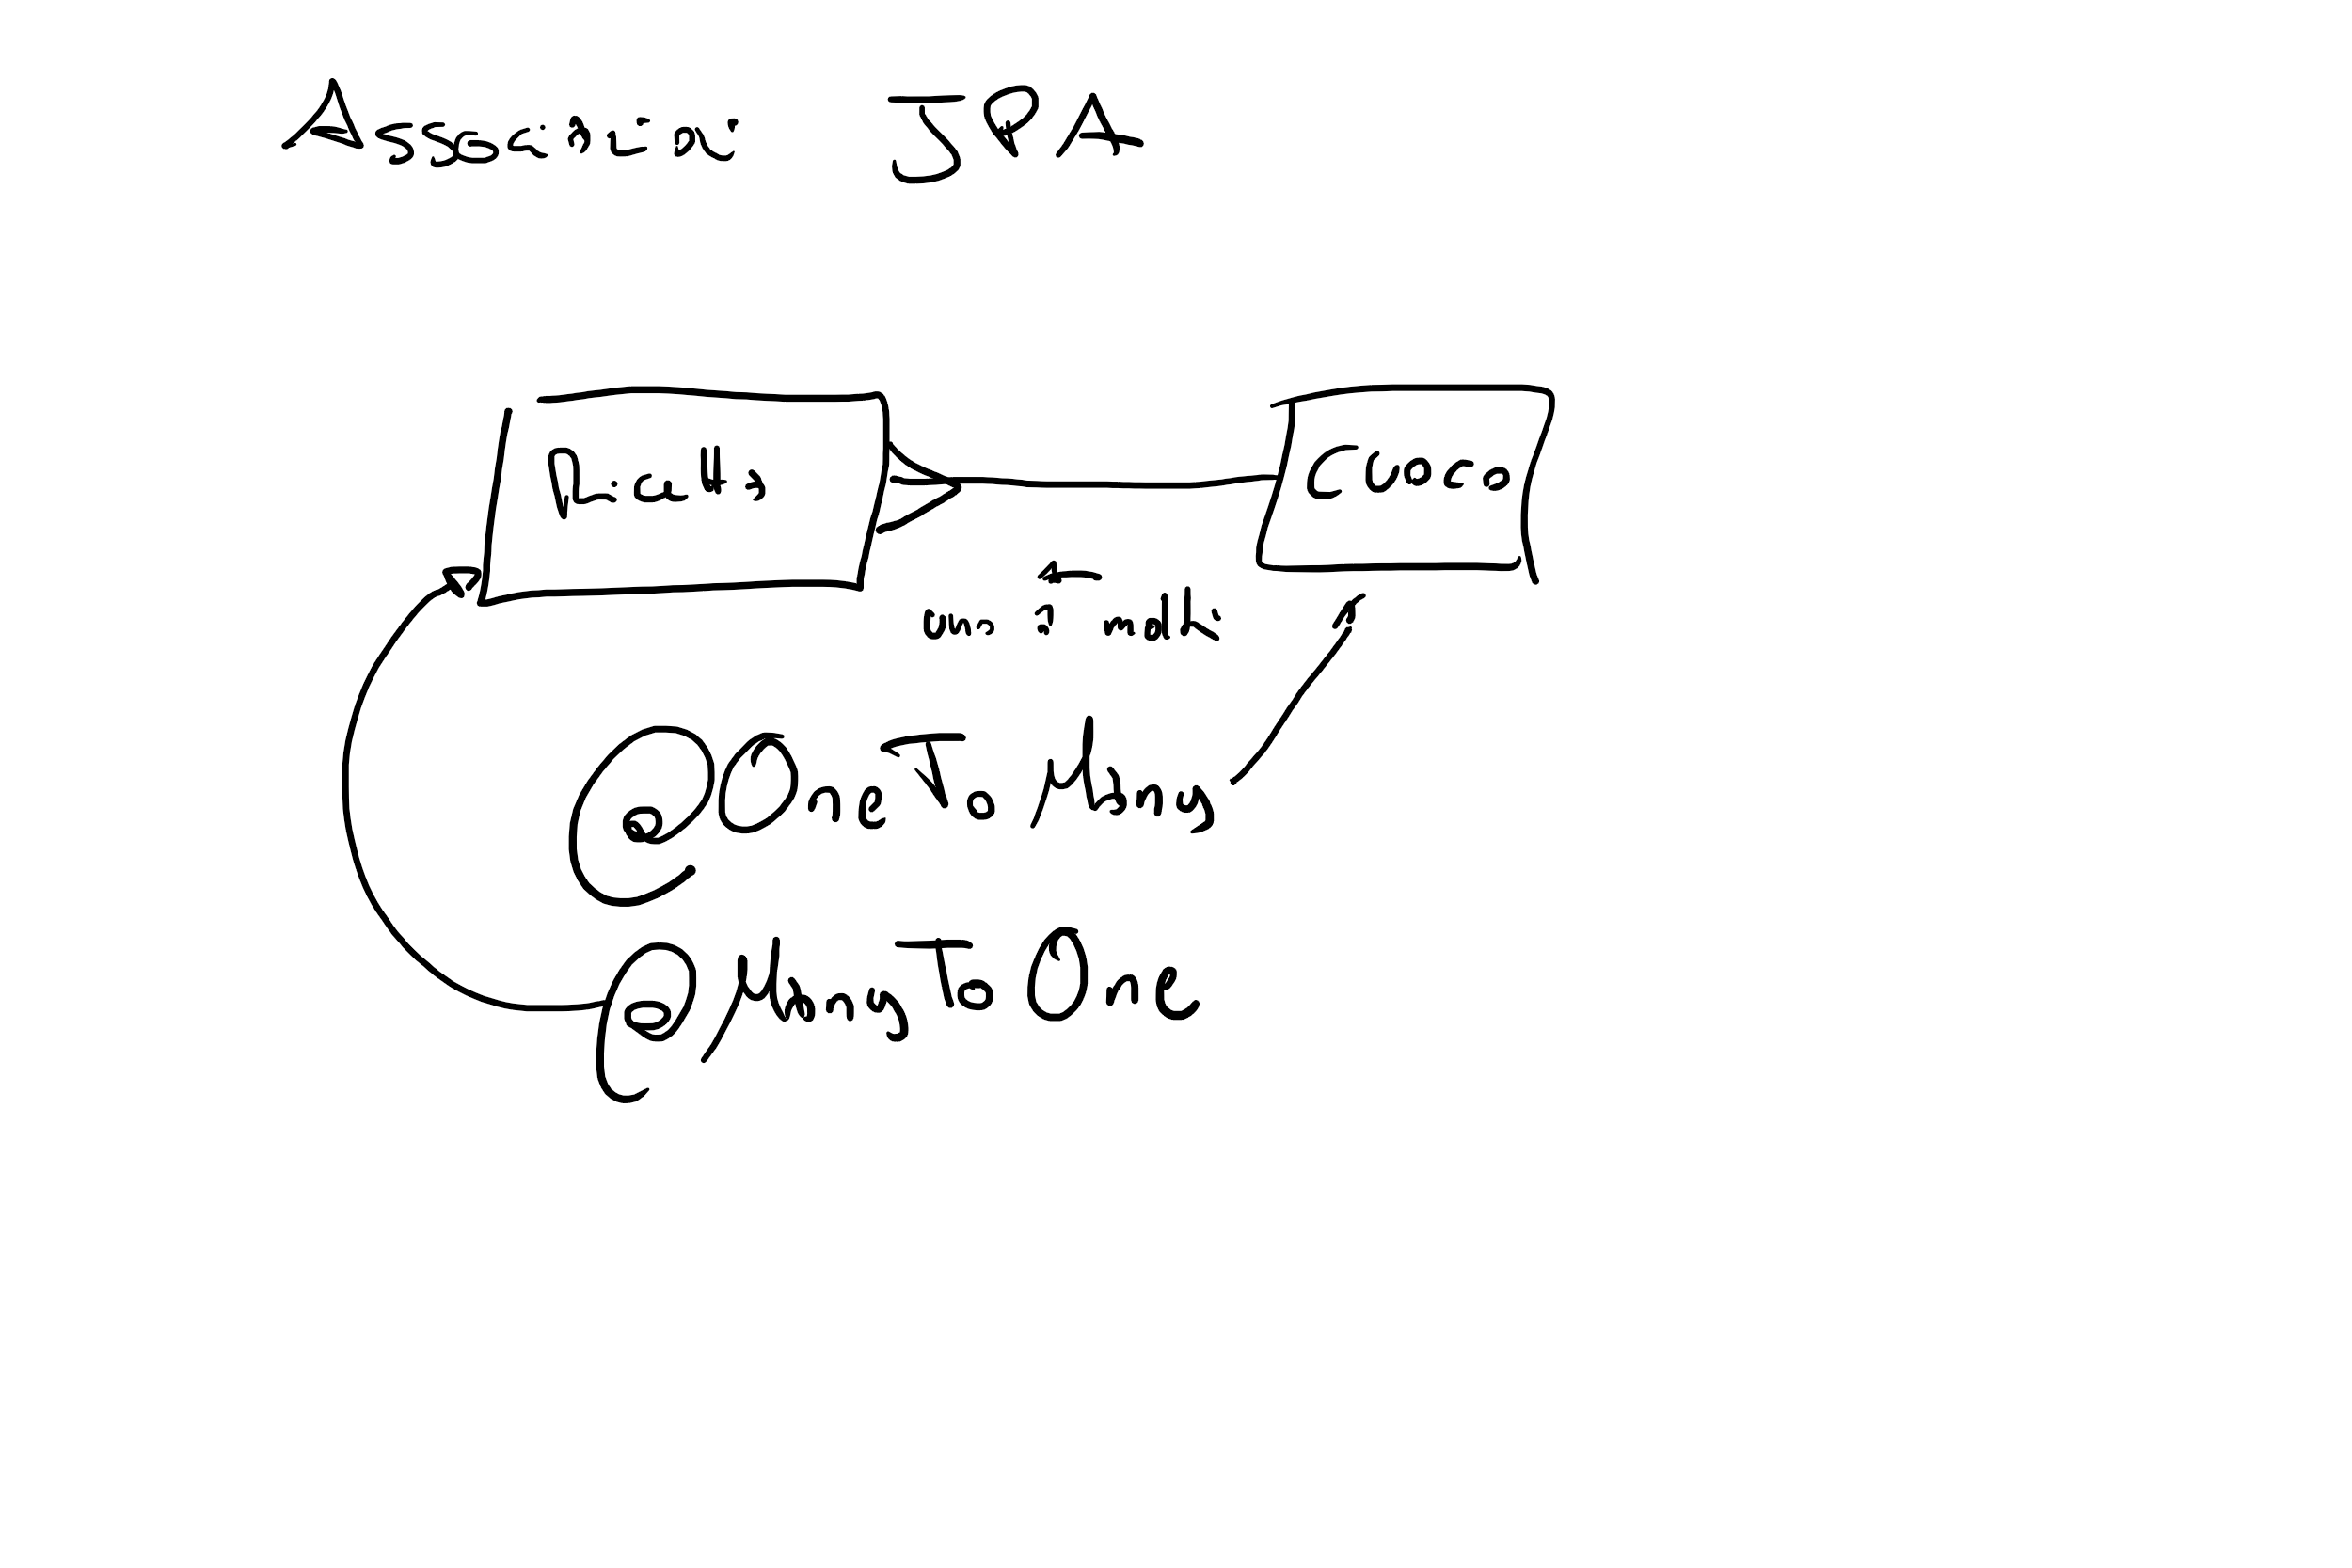 Associazioni JPA
Ricetta Cuoco
uno a molti
@OneToMany
@ManyToOne